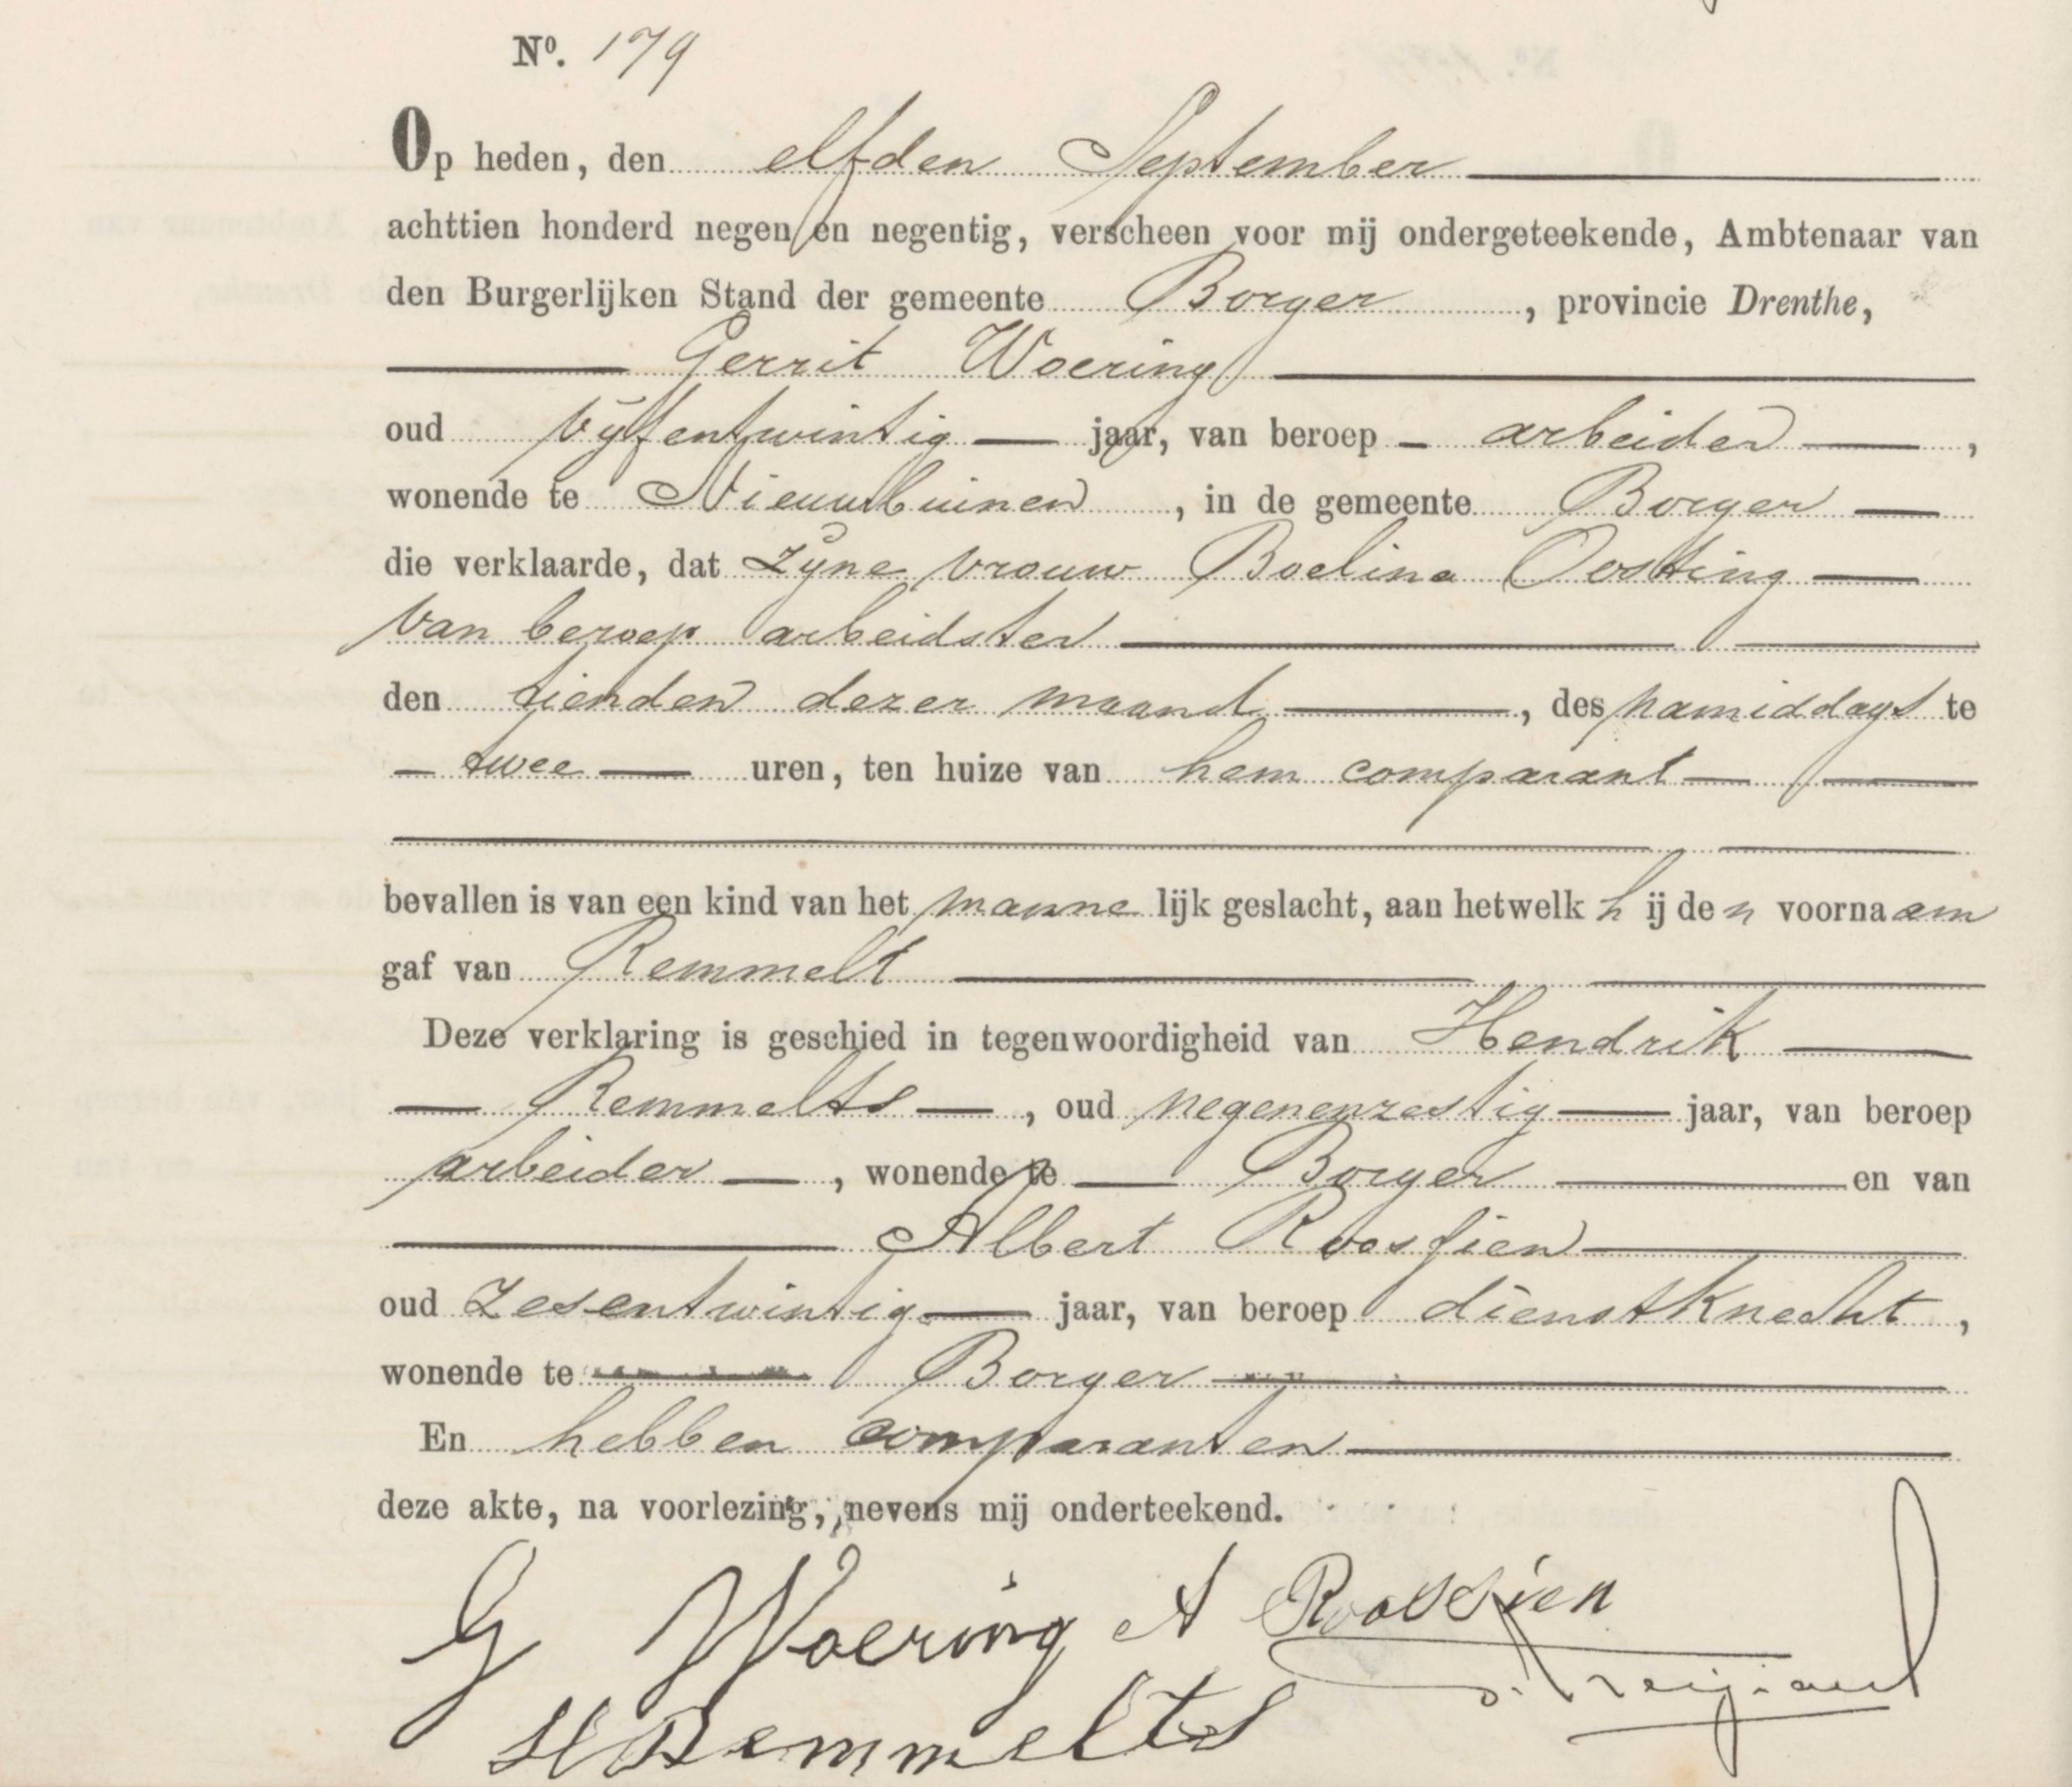 Nº. 179
Op heden, den elfden September
achttien honderd negen en negentig, verscheen voor mij ondergeteekende, Ambtenaar van
den Burgerlijken Stand der gemeente Borger, provincie Drenthe,
Gerrit Woering
oud vijfentwintig jaar, van beroep arbeider,
wonende te Nieuwbuinen, in de gemeente Borger
die verklaarde, dat zijne vrouw Roelina Oosting
van beroep arbeidster
den tienden dezer maand, des namiddags te
twee uren, ten huize van hem comparant
bevallen is van een kind van het mannelijk geslacht, aan hetwelk hij den voornaam
gaf van Remmelt
Deze verklaring is geschied in tegenwoordigheid van Hendrik
Remmelts, oud negenenzestig jaar, van beroep
arbeider, wonende te Borger en van
Albert Roosjien
oud zesentwintig jaar, van beroep dienstknecht,
wonende te Borger
En hebben comparanten
deze akte, na voorlezing, nevens mij onderteekend.
G Woering A Roossien
H Remmelts